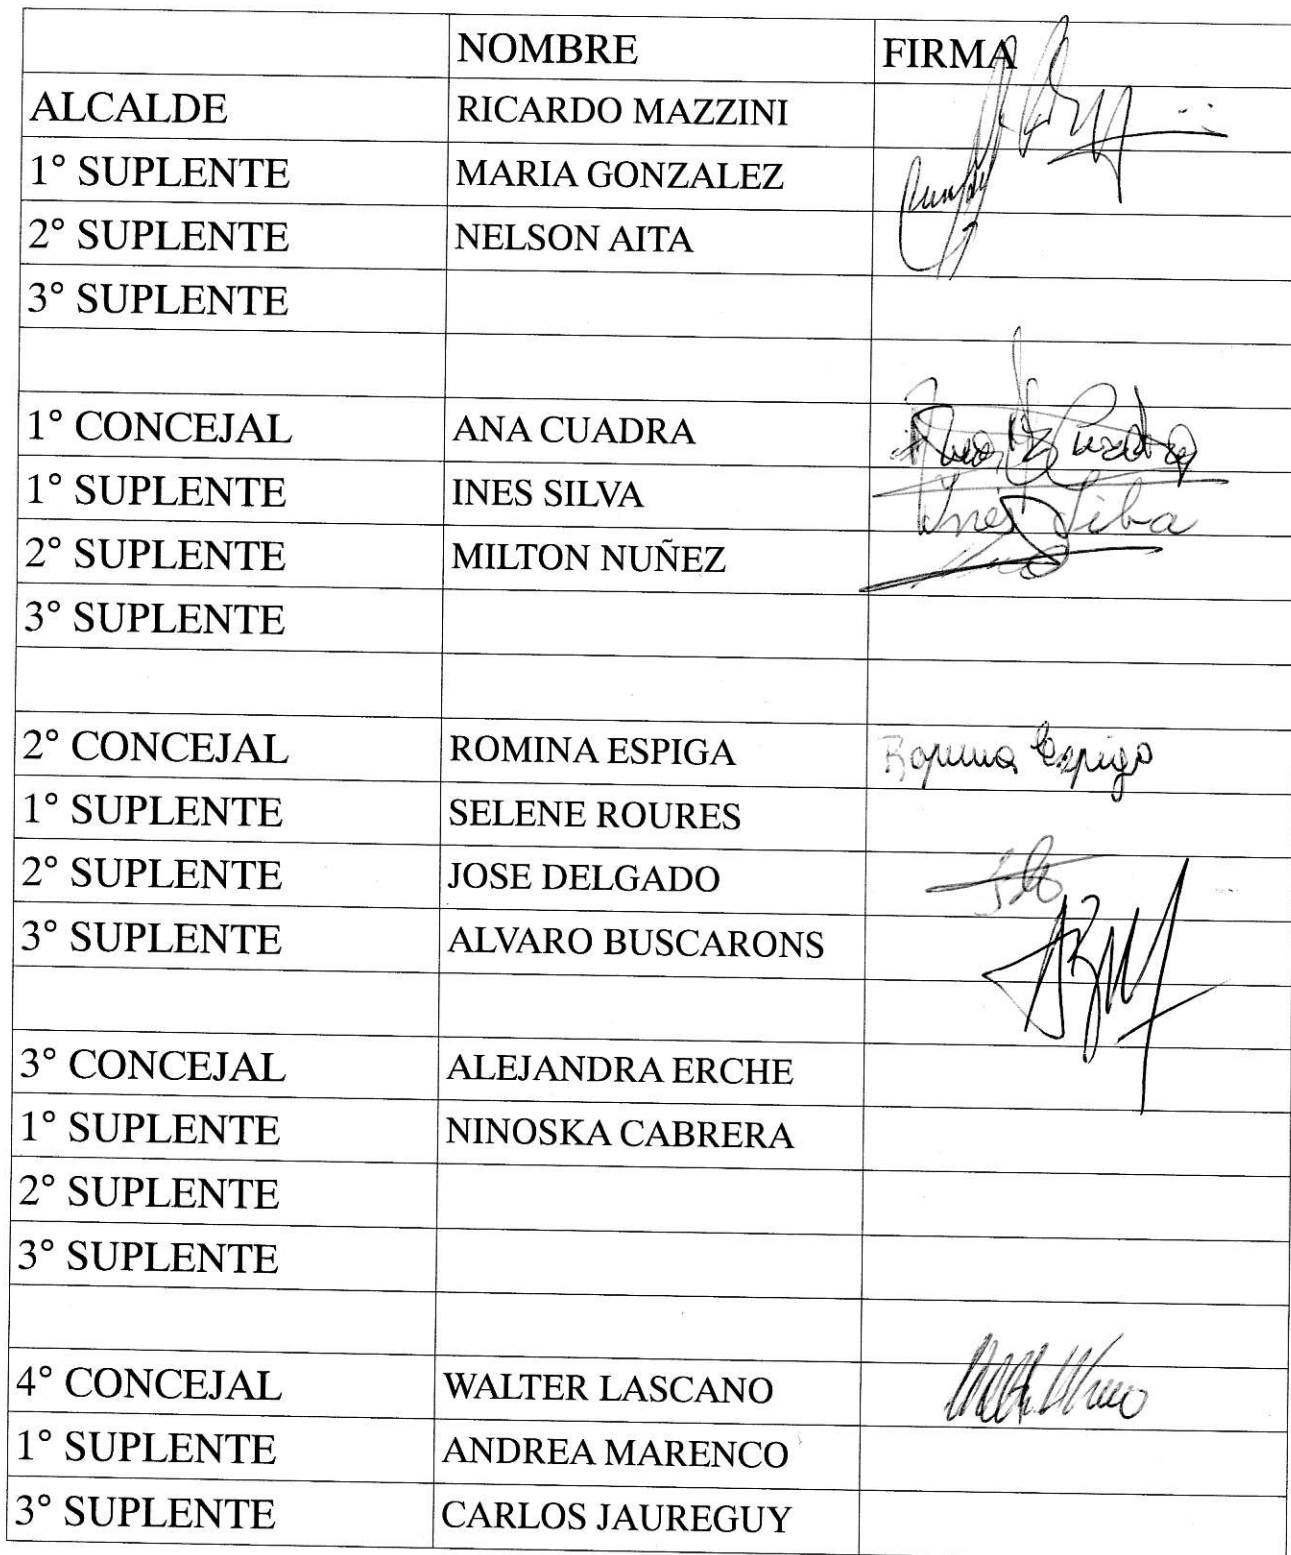 NOMBRE FIRMA
ALCALDE RICARDO MAZZINI
1° SUPLENTE MARIA GONZALEZ
2° SUPLENTE NELSON AITA
3° SUPLENTE
1° CONCEJAL ANA CUADRA Ana Cuadra
1° SUPLENTE INES SILVA Ines Silba
2° SUPLENTE MILTON NUÑEZ
3° SUPLENTE
2° CONCEJAL ROMINA ESPIGA Romina Espiga
1° SUPLENTE SELENE ROURES
2° SUPLENTE JOSE DELGADO
3° SUPLENTE ALVARO BUSCARONS
3° CONCEJAL ALEJANDRA ERCHE
1° SUPLENTE NINOSKA CABRERA
2° SUPLENTE
3° SUPLENTE
4° CONCEJAL WALTER LASCANO
1° SUPLENTE ANDREA MARENCO
3° SUPLENTE CARLOS JAUREGUY